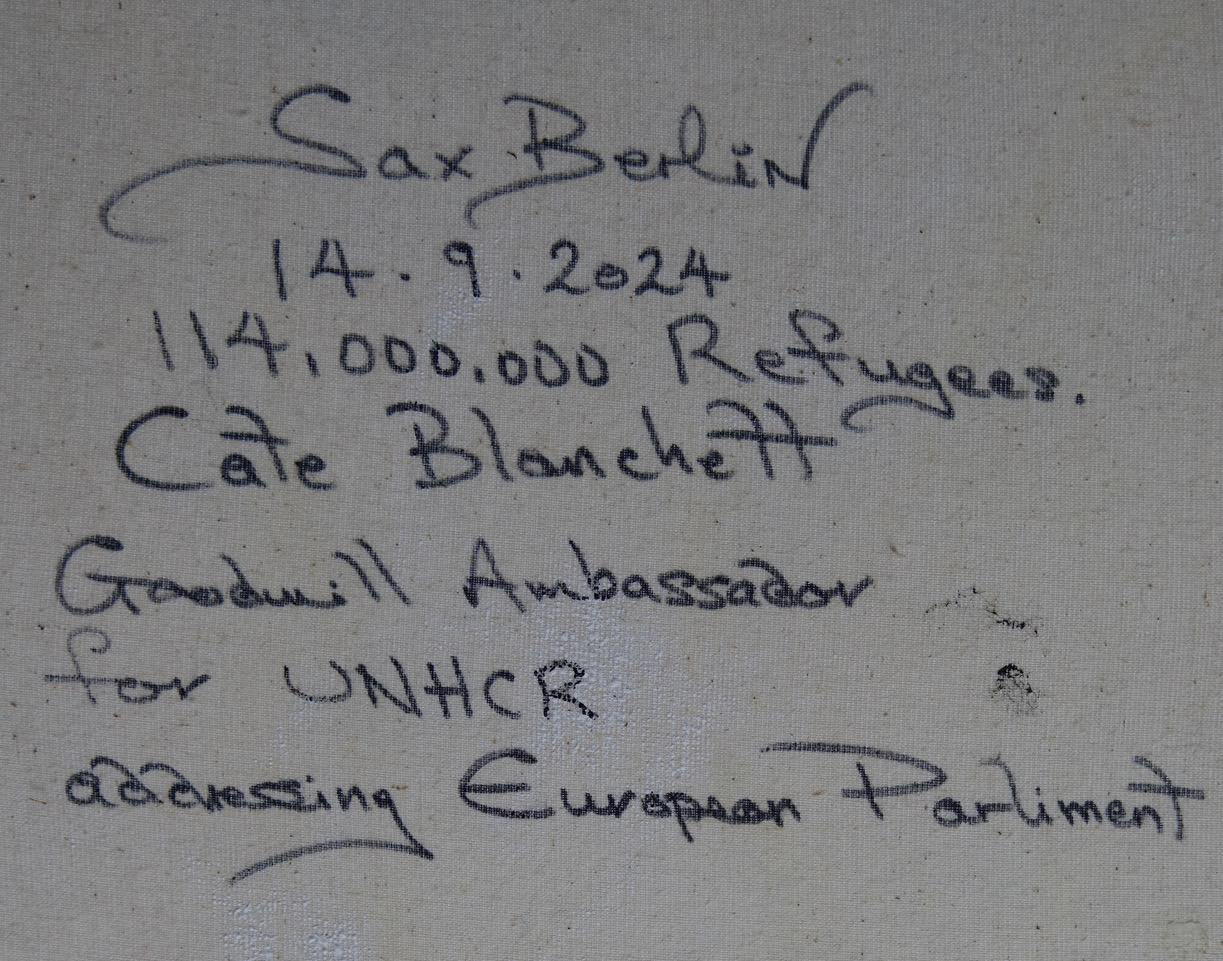 Sax Berlin
14.9.2024
114,000,000 Refugees.
Cate Blanchett
Goodwill Ambassador
for UNHCR
addressing European Parliment